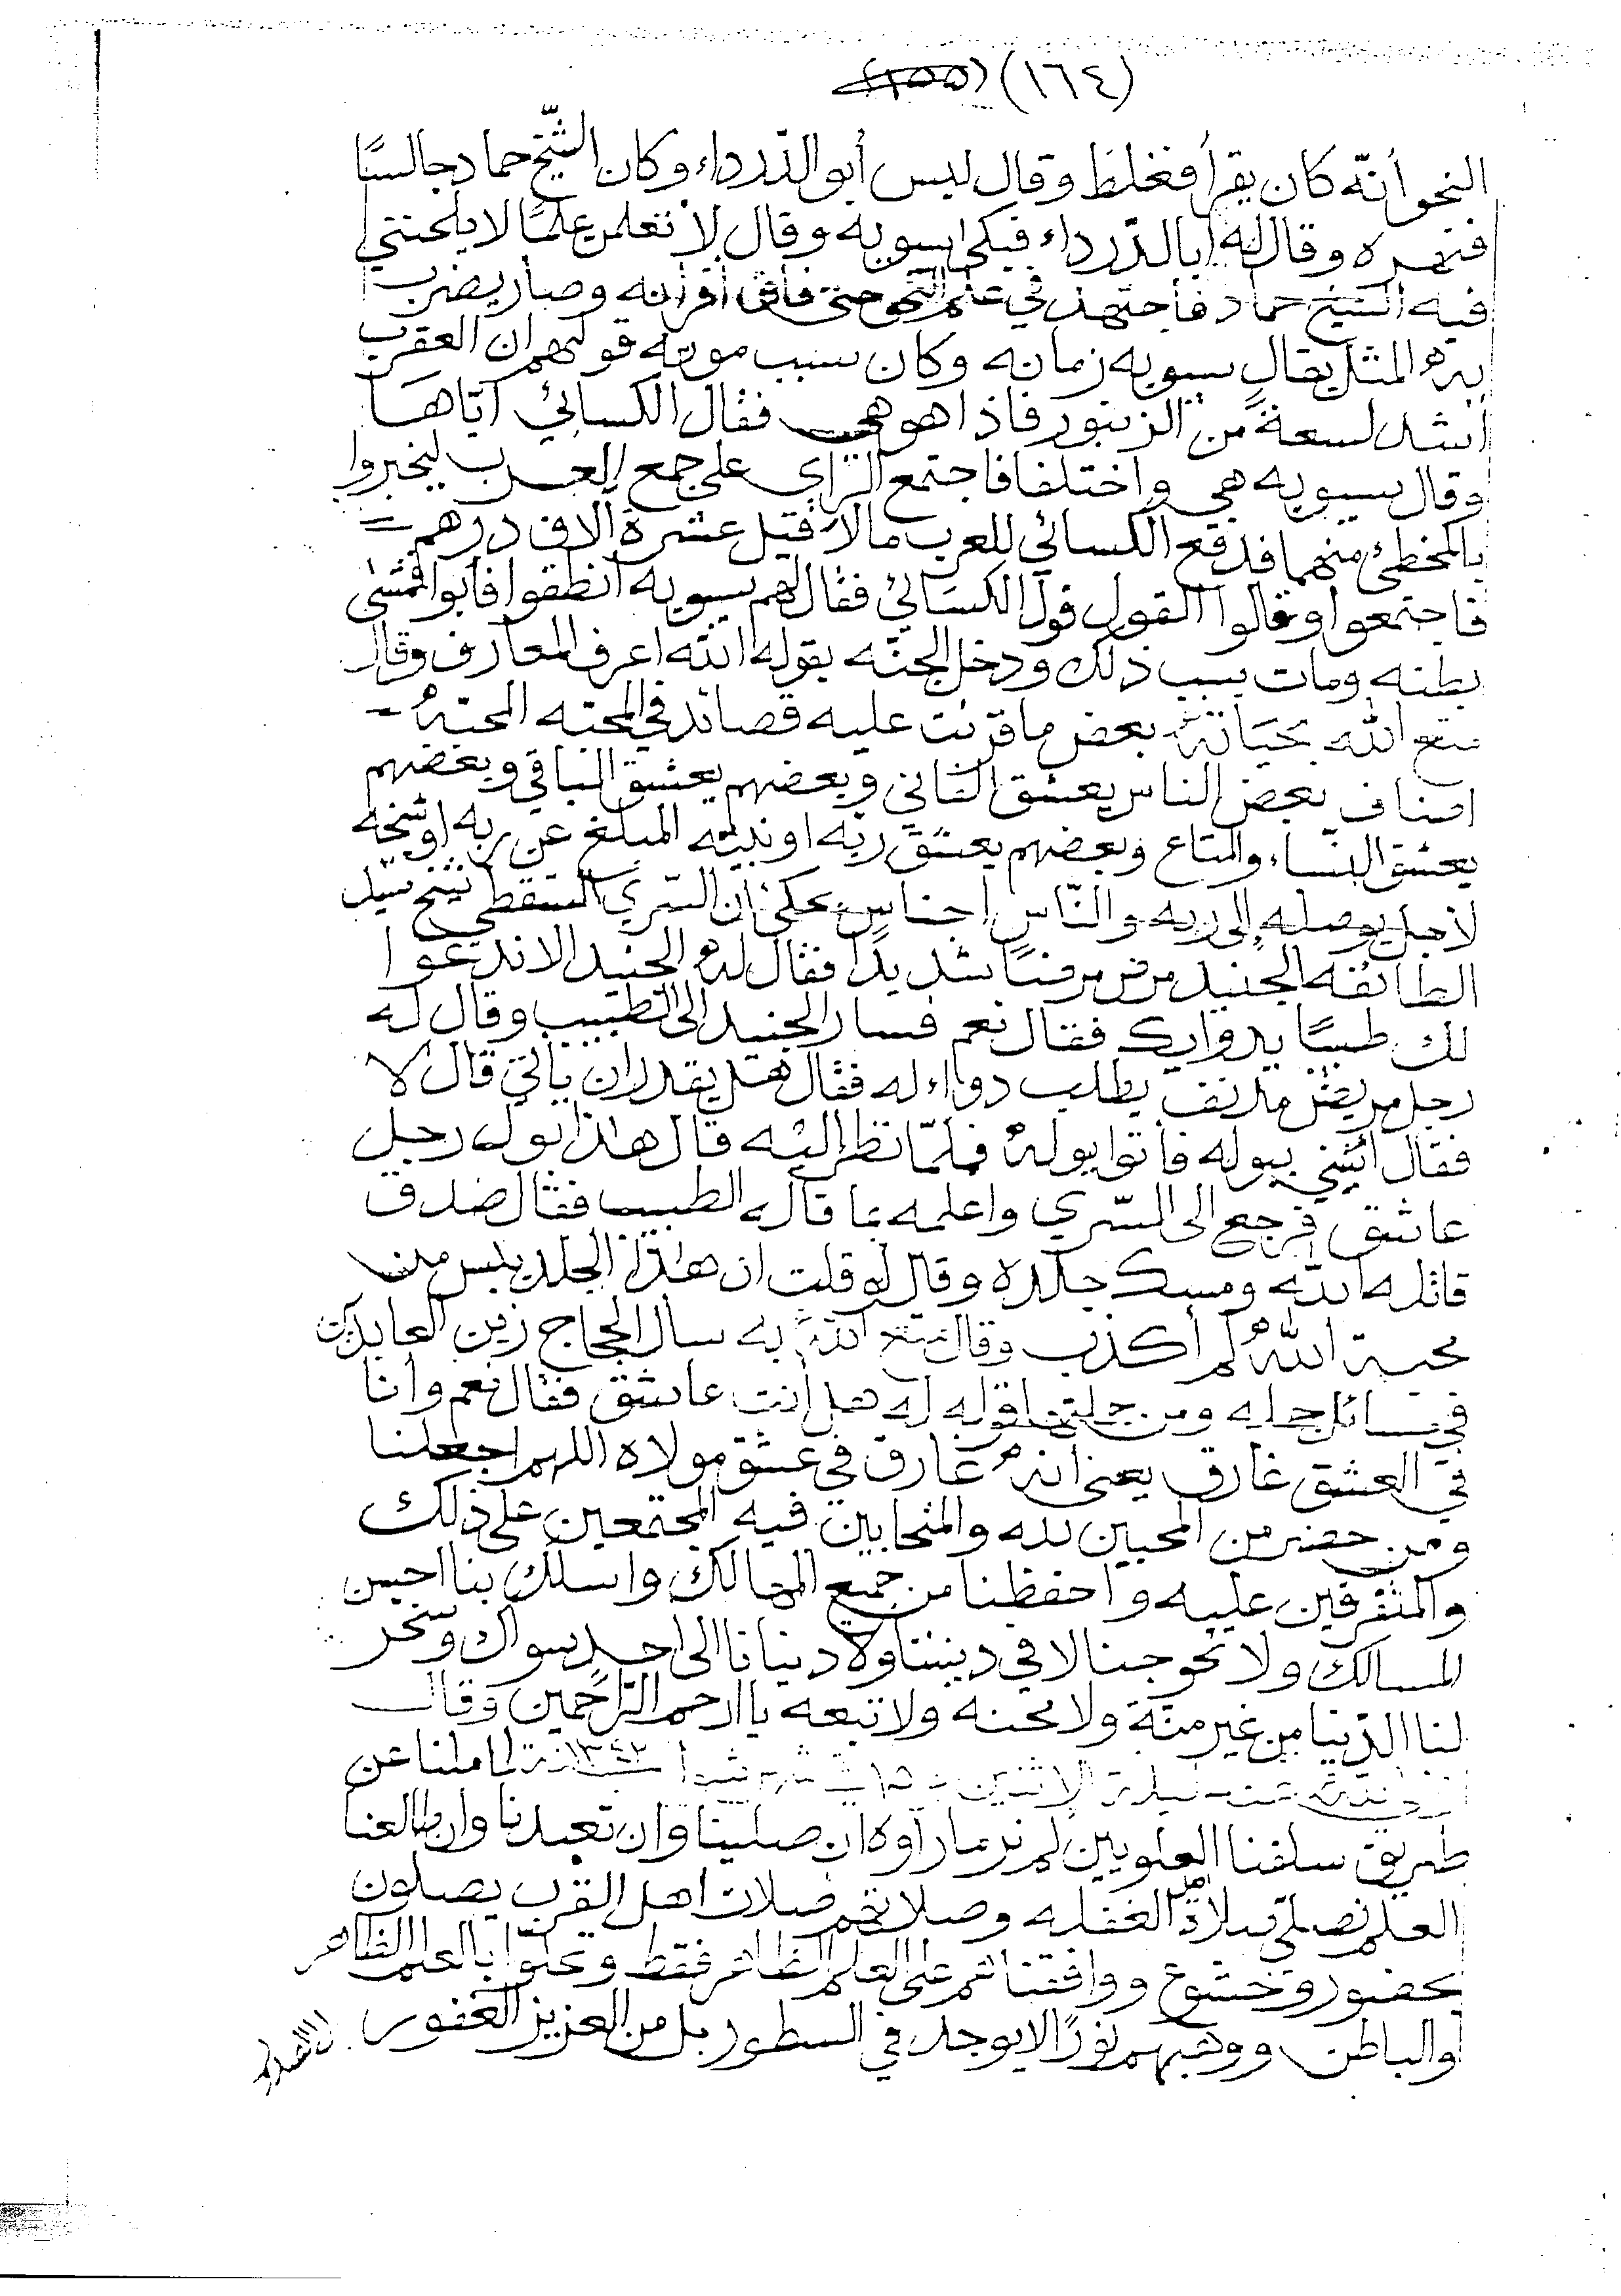 (١٦٤) (١٥٥)
النحو أنّه كان يقرأ فغلط وقال ليس أبو الدّرداء وكان الشّيخ حماد جالسًا
فنهره وقال له أبا الدّرداء فبكى سيبويه وقال لأتعلمن علمًا لا يلحنني
فيه الشيخ حماد فاجتهد في علم النّحو حتى فاق أقرانه وصار يضرب
به المثل يقال سيبويه زمانه وكان سبب موته قولهم ان العقرب
أشد لسعة من الزنبور فاذا هو هي فقال الكسائي ايّاها
وقال سيبويه هي واختلفا فاجتمع الرّاي على جمع العرب ليخبروا
بالمخطئ منهما فدفع الكسائي للعرب مالا قيل عشرة آلاف درهم =
فاجتمعوا وقالوا القول قول الكسائي فقال لهم سيبويه انطقوا فأبوا فمشى
بطنه ومات بسبب ذلك ودخل الجنّه بقوله الله اعرف المعارف وقال
متع الله بحياته بعض ما قرئت عليه قصائد في المحبه المحبّة -
اصناف بعض الناس يعشق الفاني وبعضهم يعشق الباقي وبعضهم
يعشق النساء والمتاع وبعضهم يعشق ربّه او نبيّه المبلغ عن ربه او شيخه
لأجل يوصله إلى ربه والنّاس اجناس يحكى ان السّري السقطي شيخ سيد
الطائفه الجنيد مرض مرضًا شديدًا فقال له الجنيد الا ندعوا
لك طبيبًا يداويك فقال نعم فسار الجنيد الى الطبيب وقال له
رجل مريض مدنف يطلب دواء له فقال هل يقدر ان يأتي قال لا
فقال ائتني ببوله فأتوا ببوله فلمّا نظر اليه قال هذا بول رجل
عاشق فرجع الى السّري واعلمه بما قاله الطبيب فقال صدق
قاتله الله ومسك جلده وقال لو قلت ان هذا الجلد يبس من
محبة الله لم أكذب وقال متع الله به سأل الحجاج زين العابدين
في مسائل جمله ومن جملتها قوله له هل أنت عاشق فقال نعم وأنا
في العشق غارق يعني انه غارق في عشق مولاه اللهم اجعلنا
ومن حضر من المحبين لله والمتحابين فيه المجتمعين على ذلك
والمتفرقين عليه واحفظنا من جميع المهالك واسلك بنا احسن
المسالك ولا تحوجنا لا في ديننا ولا دنيانا الى احد سواك وسخر
لنا الدّنيا من غير منّة ولا محنه ولا تبعه يا ارحم الرّاحمين وقال
ليلة الاثنين ١٥ شهر ١٣٤٢ لما ملنا عن
طريق سلفنا العلويين لم نر ما رأوه ان صلينا وان تعبدنا وان طالعنا
العلم نصلّي صلاة اهل الغفله وصلاتهم صلات اهل القرب يصلون
بحضور وخشوع ووافقناهم على العلم الظاهر فقط وعملوا بالعلم الظاهر
والباطن ووهبهم نورًا لا يوجد في السطور بل من العزيز الغفور